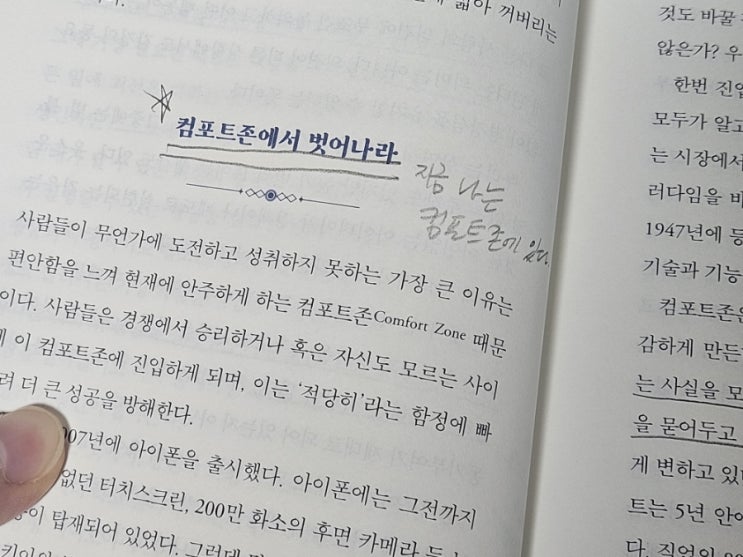 넓아 꺼버리는
컴포트존에서 벗어나라
지금 나는
컴포트존에 있다.
사람들이 무언가에 도전하고 성취하지 못하는 가장 큰 이유는
편안함을 느껴 현재에 안주하게 하는 컴포트존Comfort Zone 때문
이다. 사람들은 경쟁에서 승리하거나 혹은 자신도 모르는 사이
에 이 컴포트존에 진입하게 되며, 이는 ‘적당히’라는 함정에 빠
려 더 큰 성공을 방해한다.
007년에 아이폰을 출시했다. 아이폰에는 그전까지
없던 터치스크린, 200만 화소의 후면 카메라 등
이 탑재되어 있었다. 그런데
것도 바꿀
않은가? 우
한번 진입
모두가 알고
는 시장에서
러다임을 바
1947년에 등
기술과 기능
컴포트존은
감하게 만든
는 사실을 모
을 묻어두고
게 변하고 있
트는 5년 안에
다. 직업의